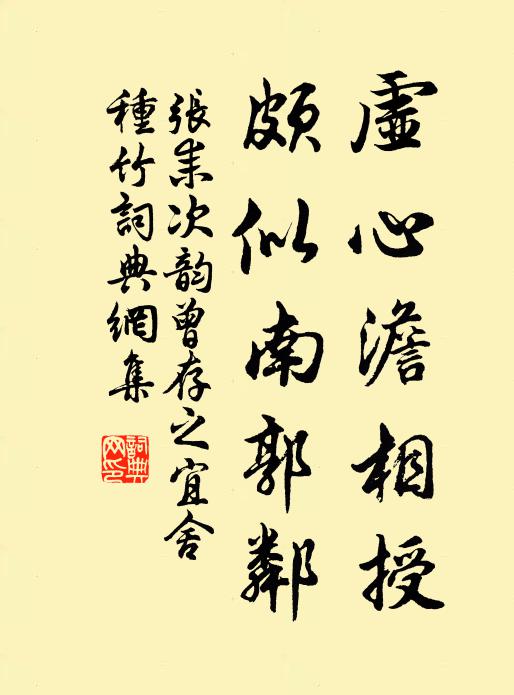 虛心澹相授
頗似南郭鄰
張耒次韵曾存之宜舍
種竹詞典網集
詞典
网印